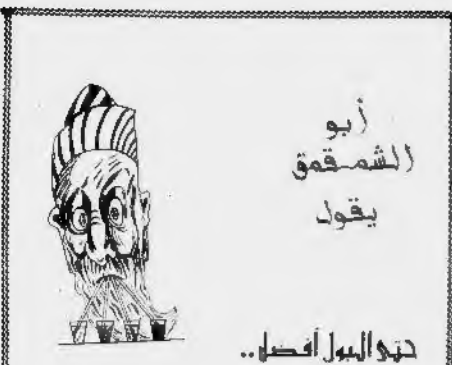 أبو
الشمقمق
يقول
حتى البول أفضل..